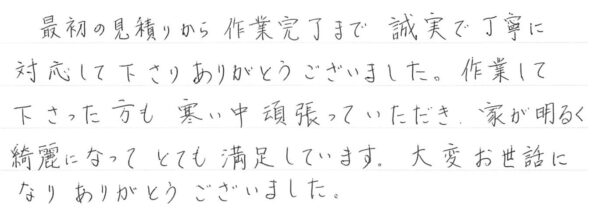 最初の見積りから作業完了まで 誠実で丁寧に
対応して下さりありがとうございました。作業して
下さった方も 寒い中頑張っていただき、家が明るく
綺麗になって とても満足しています。大変お世話に
なり ありがとうございました。